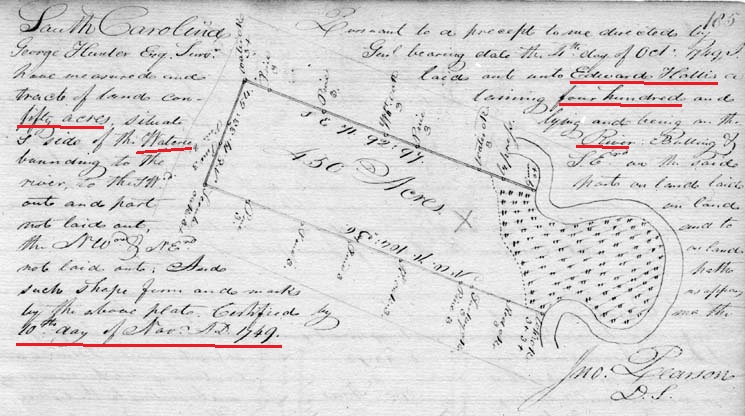 185
South Carolina Pursuant to a precept to me directed by
George Hunter Esq. Survr. Genl bearing date the 4th day of Octr. 1749 I
have measured and laid out unto Edward Hollis a
tract of land con- taining four hundred and
fifty acres, situate lying and being on the
S side of the Wateree River. Butting &
bounding to the S.E on the said
river, to the parts on land laid
outs and part on land
not laid out, and to
the NWrd & NErd on land
not laid out; And hath
such shape form and marks as appear
by the above plate. Certified by me the
10th day of Nov. A.D. 1749.
Jno. Pearson
D.S.
450 Acres
Pine 3
Pine 3
Pine 3